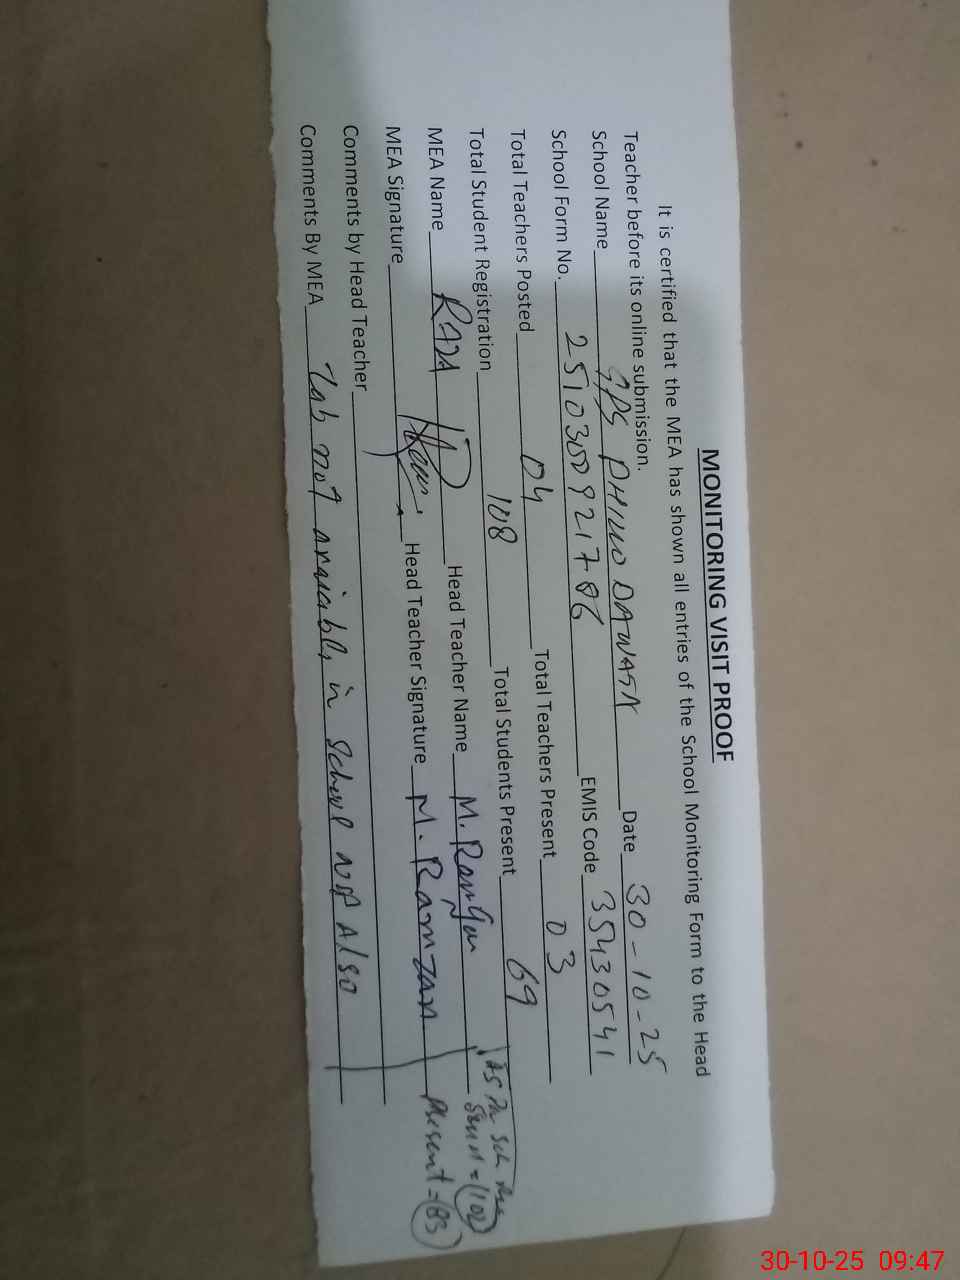 MONITORING VISIT PROOF
It is certified that the MEA has shown all entries of the School Monitoring Form to the Head
Teacher before its online submission.
School Name GPS DHILLO DAWASN Date 30-10-25
School Form No. 25103009217 EMIS Code 35430541
Total Teachers Posted 04 Total Teachers Present 03
Total Student Registration 108 Total Students Present 69
MEA Name RAZA Head Teacher Name M. Ramzan
MEA Signature Head Teacher Signature M. Ramzan
Comments by Head Teacher
Comments By MEA Lab not available in School Also
As Per Sch
= (102)
Present = (83)
30-10-25 09:47